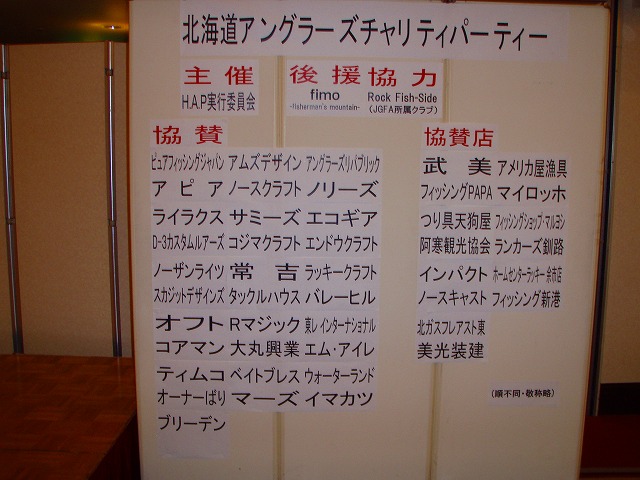 北海道アングラーズチャリティパーティー
主催
H.A.P実行委員会
後援協力
fimo
-fisherman's mountain-
Rock Fish-Side
(JGFA所属クラブ)
協賛
ピュアフィッシングジャパン アムズデザイン アングラーズリパブリック
アピア ノースクラフト ノリーズ
ライラクス サミーズ エコギア
D-3カスタムルアーズ コジマクラフト エンドウクラフト
ノーザンライツ 常吉 ラッキークラフト
スカジットデザインズ タックルハウス バレーヒル
オフト Rマジック 東レインターナショナル
コアマン 大丸興業 エム・アイレ
ティムコ ベイトブレス ウォーターランド
オーナーばり マーズ イマカツ
ブリーデン
協賛店
武美 アメリカ屋漁具
フィッシングPAPA マイロッホ
つり具天狗屋 フィッシングショップ・マルヨシ
阿寒観光協会 ランカーズ釧路
インパクト ホームセンターラッキー余市店
ノースキャスト フィッシング新港
北ガスフレアスト東
美光装建
(順不同・敬称略)